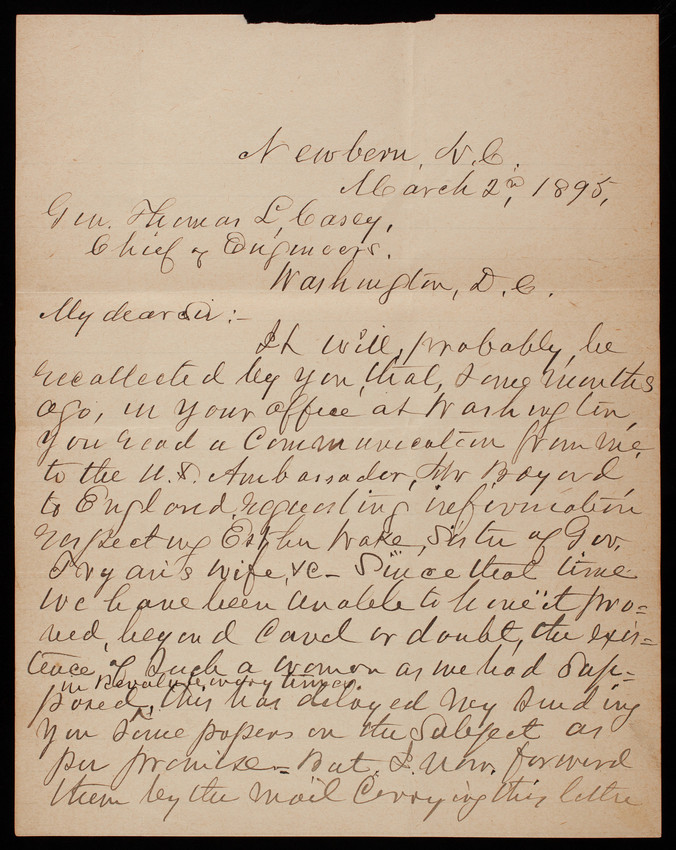 Newbern, N.C.
March 2nd, 1895,
Gen. Thomas L, Casey,
Chief of Engineers.
Washington, D.C.
My dear Sir:-
It will, probably, be
recollected by you, that, some months
ago, in your office at Washington,
you read a Communication from me
to the U.S. Ambassador, Mr Bayard
to England, requesting information
respecting Esther Wake, Sister of Gov.
Tryan's wife, &c- Since that time
we have been unable to have it pro=
ved, beyond Cavel or doubt, the exis=
tence, of such a woman as we had Sup=
in Revolutionary times
posed, this has delayed my sending
you some papers on the Subject as
per promise- But, I now, forward
them by the mail Carrying this letter